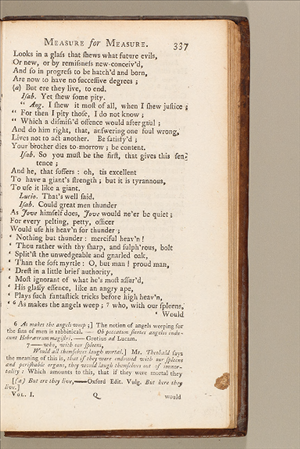 MEASURE for MEASURE. 337
Looks in a glaſs that ſhews what future evils,
Or new, or by remiſsneſs new-conceiv'd,
And ſo in progreſs to be hatch'd and born,
Are now to have no ſucceſſive degrees ;
(a) But ere they live, to end.
Iſab. Yet ſhew ſome pity.
" Ang. I ſhew it moſt of all, when I ſhew juſtice ;
" For then I pity thoſe, I do not know ;
" Which a diſmiſs'd offence would after gaul ;
And do him right, that, anſwering one foul wrong,
Lives not to act another. Be ſatisfy'd ;
Your brother dies to-morrow ; be content.
Iſab. So you muſt be the firſt, that gives this ſen-
tence ;
And he, that ſuffers : oh, tis excellent
To have a giant's ſtrength ; but it is tyrannous,
To uſe it like a giant.
Lucio. That's well ſaid.
Iſab. Could great men thunder
As Jove himſelf does, Jove would ne'er be quiet ;
For every pelting, petty, officer
Would uſe his heav'n for thunder ;
' Nothing but thunder : merciful heav'n !
' Thou rather with thy ſharp, and ſulph'rous, bolt
' Split'ſt the unwedgeable and gnarled oak,
' Than the ſoft myrtle : O, but man ! proud man,
' Dreſt in a little brief authority,
' Moſt ignorant of what he's moſt aſſur'd,
' His glaſſy eſſence, like an angry ape,
' Plays ſuch fantaſtick tricks before high heav'n,
' 6 As makes the angels weep ; 7 who, with our ſpleens,
' Would
6 As makes the angels weep ;] The notion of angels weeping for
the ſins of men is rabbinical. — Ob peccatum flentes angelos indu-
cunt Hebræorum magiſtri. — Grotius ad Lucam.
7 — who, with our ſpleens,
Would all themſelves laugh mortal.] Mr. Theobald ſays
the meaning of this is, that if they were endowed with our ſpleens
and periſhable organs, they would laugh themſelves out of immor-
tality : Which amounts to this, that if they were mortal they
[(a) But ere they live,—Oxford Edit. Vulg. But here they
live.]
VOL. I. Q would